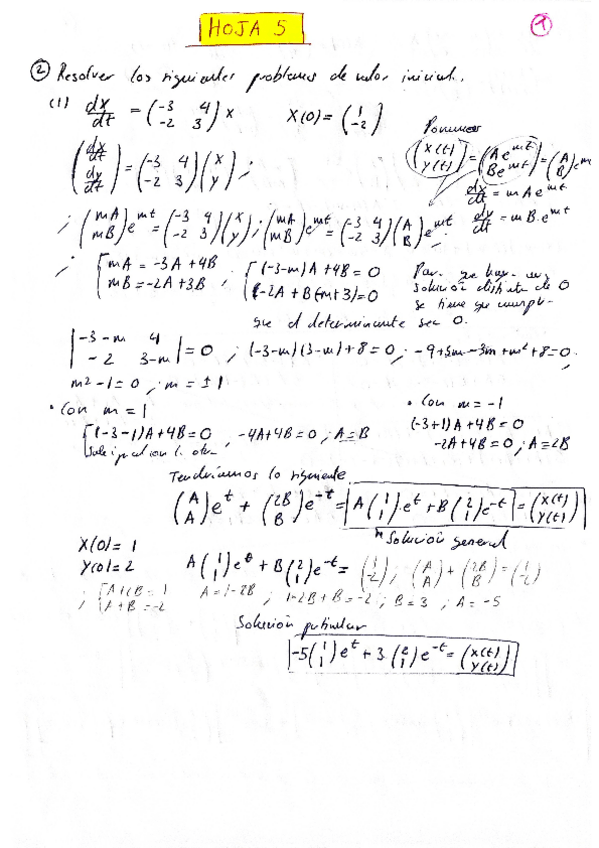 HOJA 5
1
② Resolver los siguientes problemas de valor inicial.
(1) dx/dt = (-3 4; -2 3) x   X(0) = (1; -2)
Ponemos
(dx/dt; dy/dt) = (-3 4; -2 3)(x; y);   (x(t); y(t)) = (Ae^mt; Be^mt) = (A; B)e^mt
dx/dt = mAe^mt
; (mA; mB)e^mt = (-3 4; -2 3)(x; y); (mA; mB)e^mt = (-3 4; -2 3)(A; B)e^mt   dy/dt = mB·e^mt
; { mA = -3A + 4B; mB = -2A + 3B   ; { (-3-m)A + 4B = 0; -2A + B(-m+3) = 0
Para que haya una
solución distinta de 0
se tiene que cumplir
que el determinante sea 0.
|-3-m 4; -2 3-m| = 0 ; (-3-m)(3-m)+8=0; -9+3m-3m+m²+8=0;
m²-1=0; m=±1
• Con m = 1
{ (-3-1)A+4B=0, -4A+4B=0; A=B
• Con m = -1
(-3+1)A+4B=0
-2A+4B=0; A=2B
Tendríamos lo siguiente
(A; A)e^t + (2B; B)e^-t = A(1; 1)·e^t + B(2; 1)e^-t = (x(t); y(t))
Solución general
X(0)=1
Y(0)=2   A(1; 1)e^t + B(2; 1)e^-t = (1; -2); (A; A) + (2B; B) = (1; -2)
; { A+2B=1; A+B=-2   A=1-2B ; 1-2B+B=-2; B=3; A=-5
Solución particular
-5(1; 1)e^t + 3(2; 1)e^-t = (x(t); y(t))